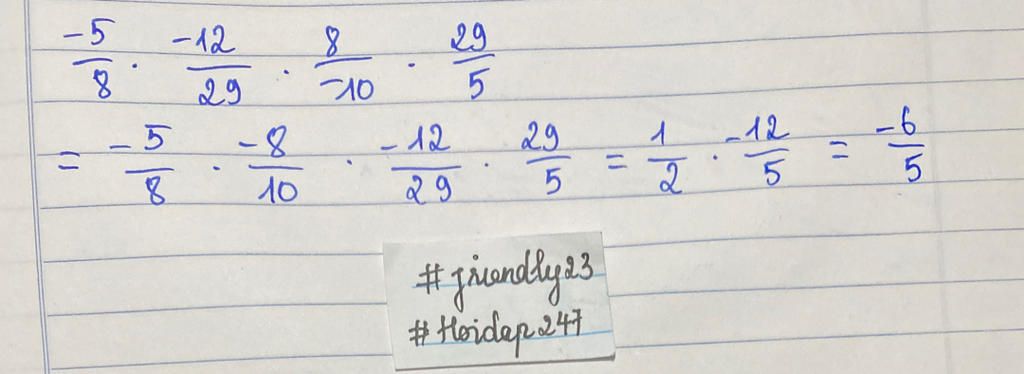 -5/8 . -12/29 . 8/-10 . 29/5
= -5/8 . -8/10 . -12/29 . 29/5 = 1/2 . -12/5 = -6/5
#friendly23
#Hoidap247